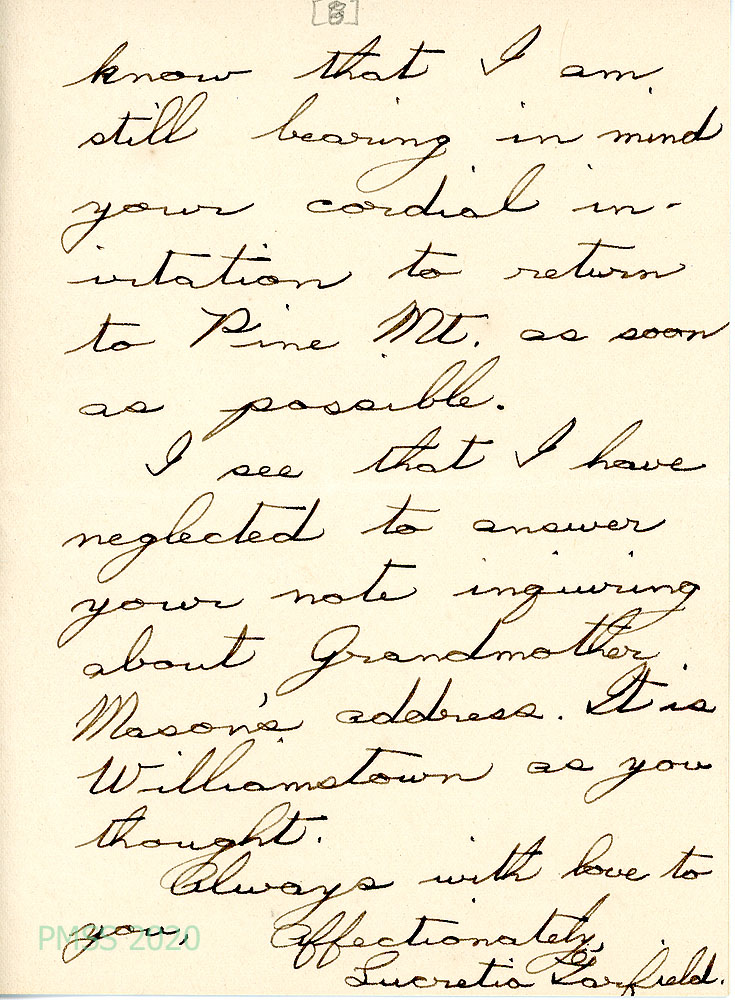 [3]
know that I am
still bearing in mind
your cordial in-
vitation to return
to Pine Mt. as soon
as possible.
I see that I have
neglected to answer
your note inquiring
about Grandmother
Mason's address. It is
Williamstown as you
thought.
Always with love to
you,
Affectionately,
Lucretia Garfield.
PMSS 2020